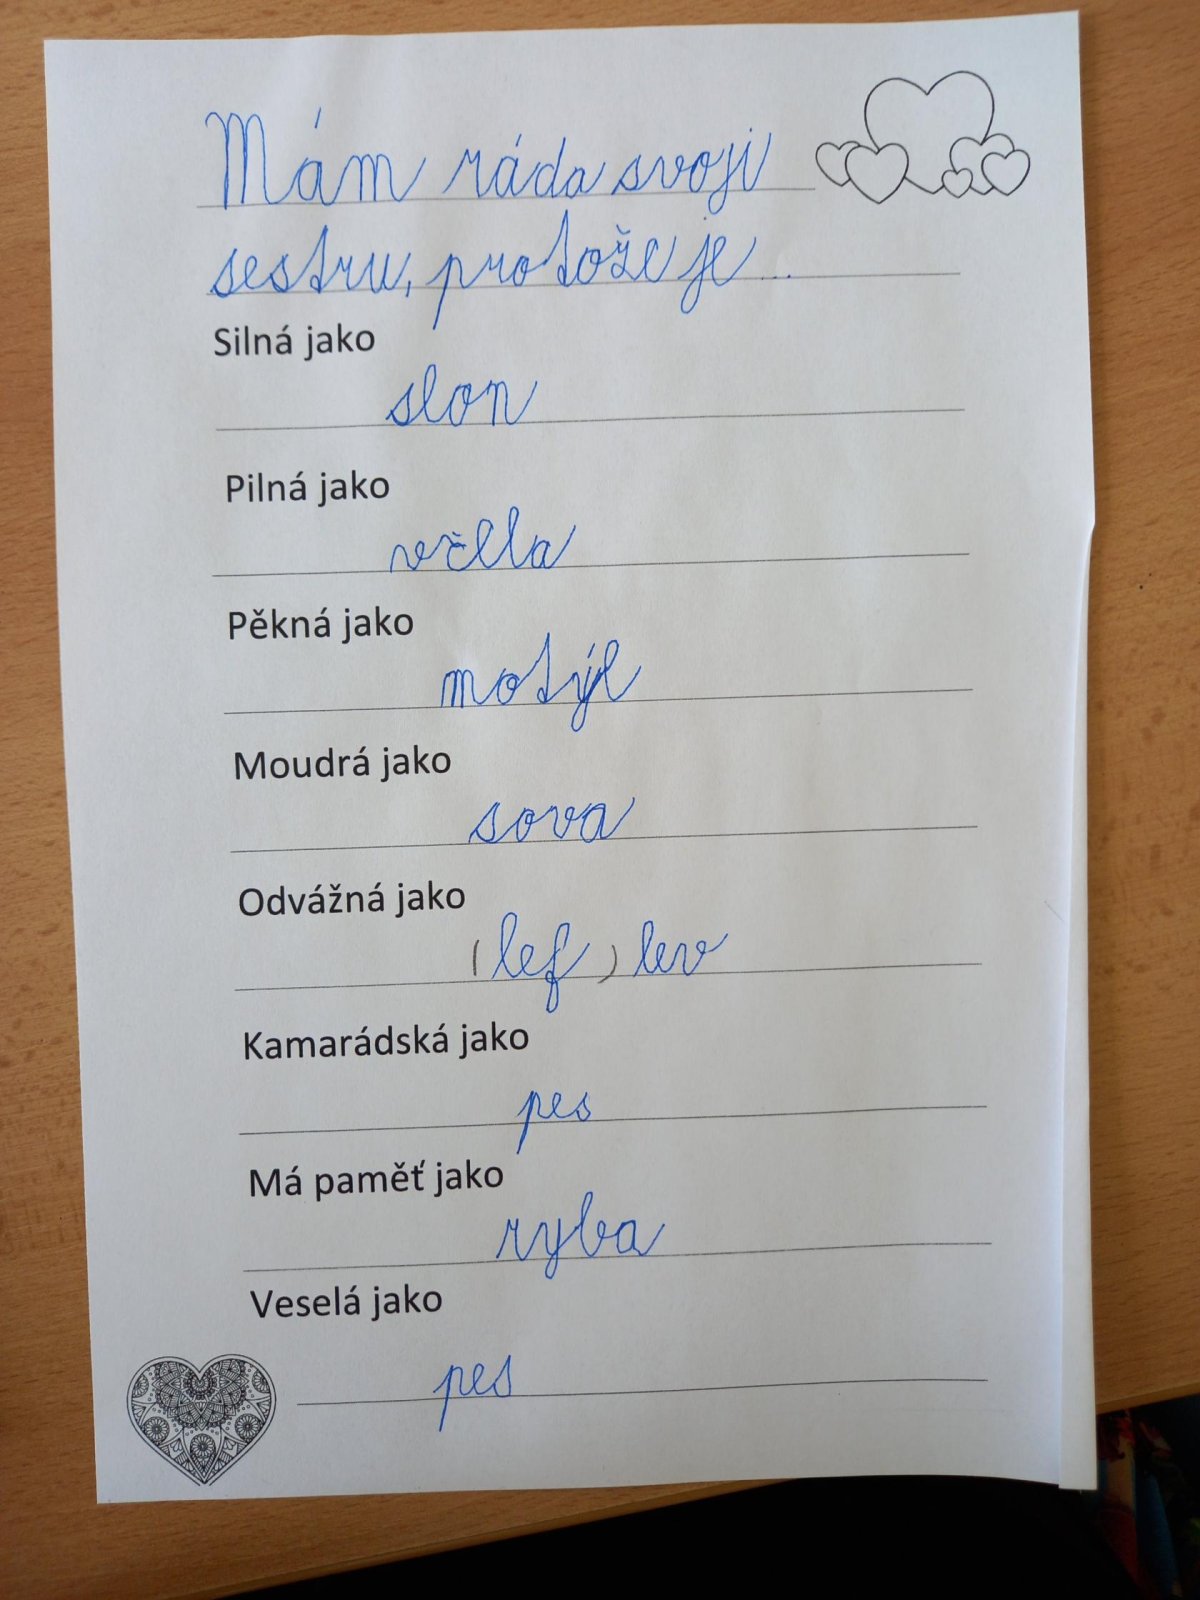 Mám ráda svoji
sestru, protože je...
Silná jako
slon
Pilná jako
včela
Pěkná jako
motýl
Moudrá jako
sova
Odvážná jako
(lef) lev
Kamarádská jako
pes
Má paměť jako
ryba
Veselá jako
pes